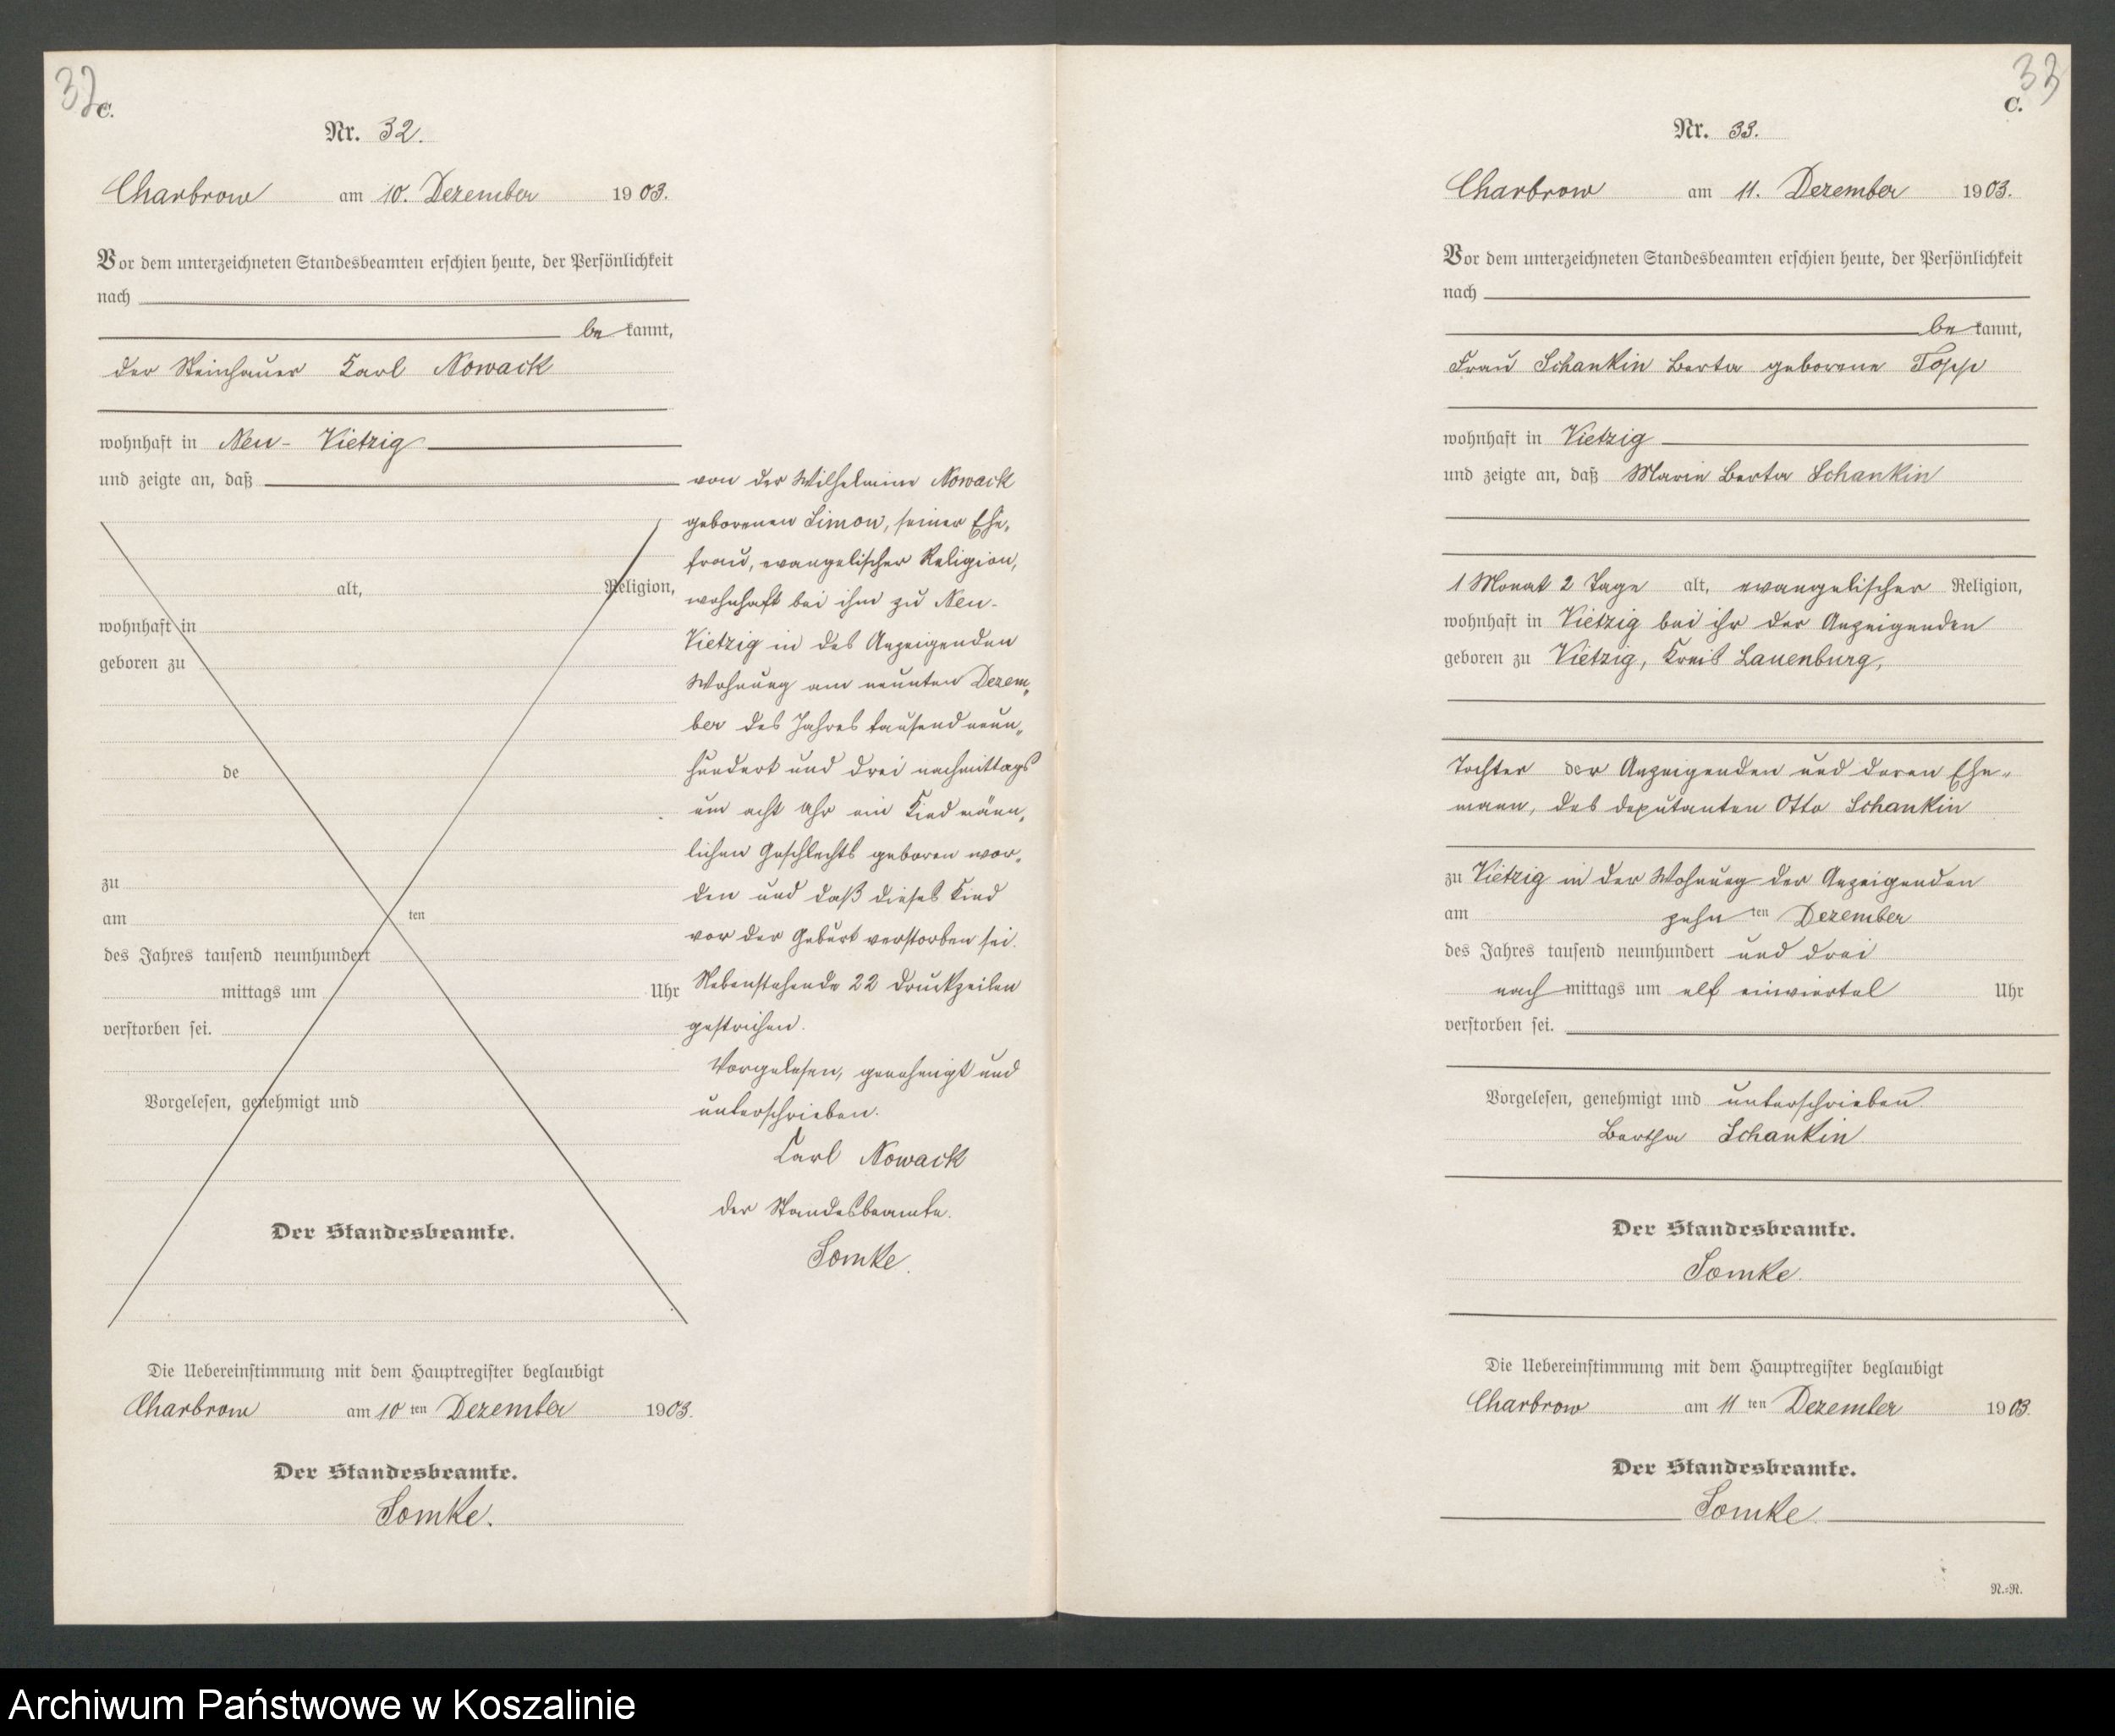 32
C.
Nr. 32.
Charbrow am 10. Dezember 1903.
Vor dem unterzeichneten Standesbeamten erschien heute, der Persönlichkeit
nach
be kannt,
der Steinhauer Karl Nowack
wohnhaft in Neu-Vietzig
und zeigte an, daß
alt, Religion,
wohnhaft in
geboren zu
de
zu
am ten
des Jahres tausend neunhundert
mittags um Uhr
verstorben sei.
Vorgelesen, genehmigt und
Der Standesbeamte.
von der Wilhelmine Nowack
geborenen Simon, seiner Ehe„
frau, evangelischer Religion,
wohnhaft bei ihm zu Neu-
Vietzig in des Anzeigenden
Wohnung am neunten Dezem„
ber des Jahres tausend neun„
hundert und drei nachmittags
um acht Uhr ein Kind männ„
lichen Geschlechts geboren wor„
den und daß dieses Kind
vor der Geburt verstorben sei.
Nebenstehende 22 Druckzeilen
gestrichen.
Vorgelesen, genehmigt und
unterschrieben.
Karl Nowack
der Standesbeamte.
Somke.
Die Uebereinstimmung mit dem Hauptregister beglaubigt
Charbrow am 10 ten Dezember 1903.
Der Standesbeamte.
Somke.
33
C.
Nr. 33.
Charbrow am 11. Dezember 1903.
Vor dem unterzeichneten Standesbeamten erschien heute, der Persönlichkeit
nach
be kannt,
Frau Schankin Berta geborene Topp
wohnhaft in Vietzig
und zeigte an, daß Marie Berta Schankin
1 Monat 2 Tage alt, evangelischer Religion,
wohnhaft in Vietzig bei ihr der Anzeigenden
geboren zu Vietzig, Kreis Lauenburg,
Tochter der Anzeigenden und deren Ehe„
mann, des deputanten Otto Schankin
zu Vietzig in der Wohnung der Anzeigenden
am zehn ten Dezember
des Jahres tausend neunhundert und drei
nach mittags um elf einviertel Uhr
verstorben sei.
Vorgelesen, genehmigt und unterschrieben.
Bertha Schankin
Der Standesbeamte.
Somke.
Die Uebereinstimmung mit dem Hauptregister beglaubigt
Charbrow am 11 ten Dezember 1903.
Der Standesbeamte.
Somke.
N.-N.
Archiwum Państwowe w Koszalinie